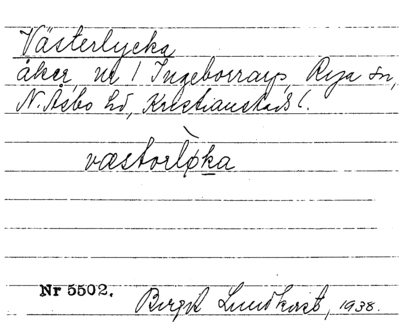 Västerlycka
åker, nr 1 Ingeborrarp, Rya sn,
N. Åsbo hd, Kristianstads l.
væstorlø̀ka
Nr 5502.
Birgit Lundkvist, 1938.